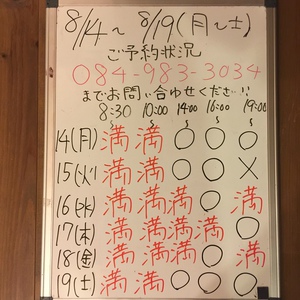 8/14〜8/19(月〜土)
ご予約状況
084-983-3034
までお問い合わせください!!
8:30〜 10:00〜 14:00〜 16:00〜 19:00〜
14(月) 満 満 ○ ○ ○
15(火) 満 満 ○ ○ ×
16(水) 満 満 満 ○ 満
17(木) 満 満 満 満 ○
18(金) 満 満 満 ○ 満
19(土) 満 ○ ○ ○ ○